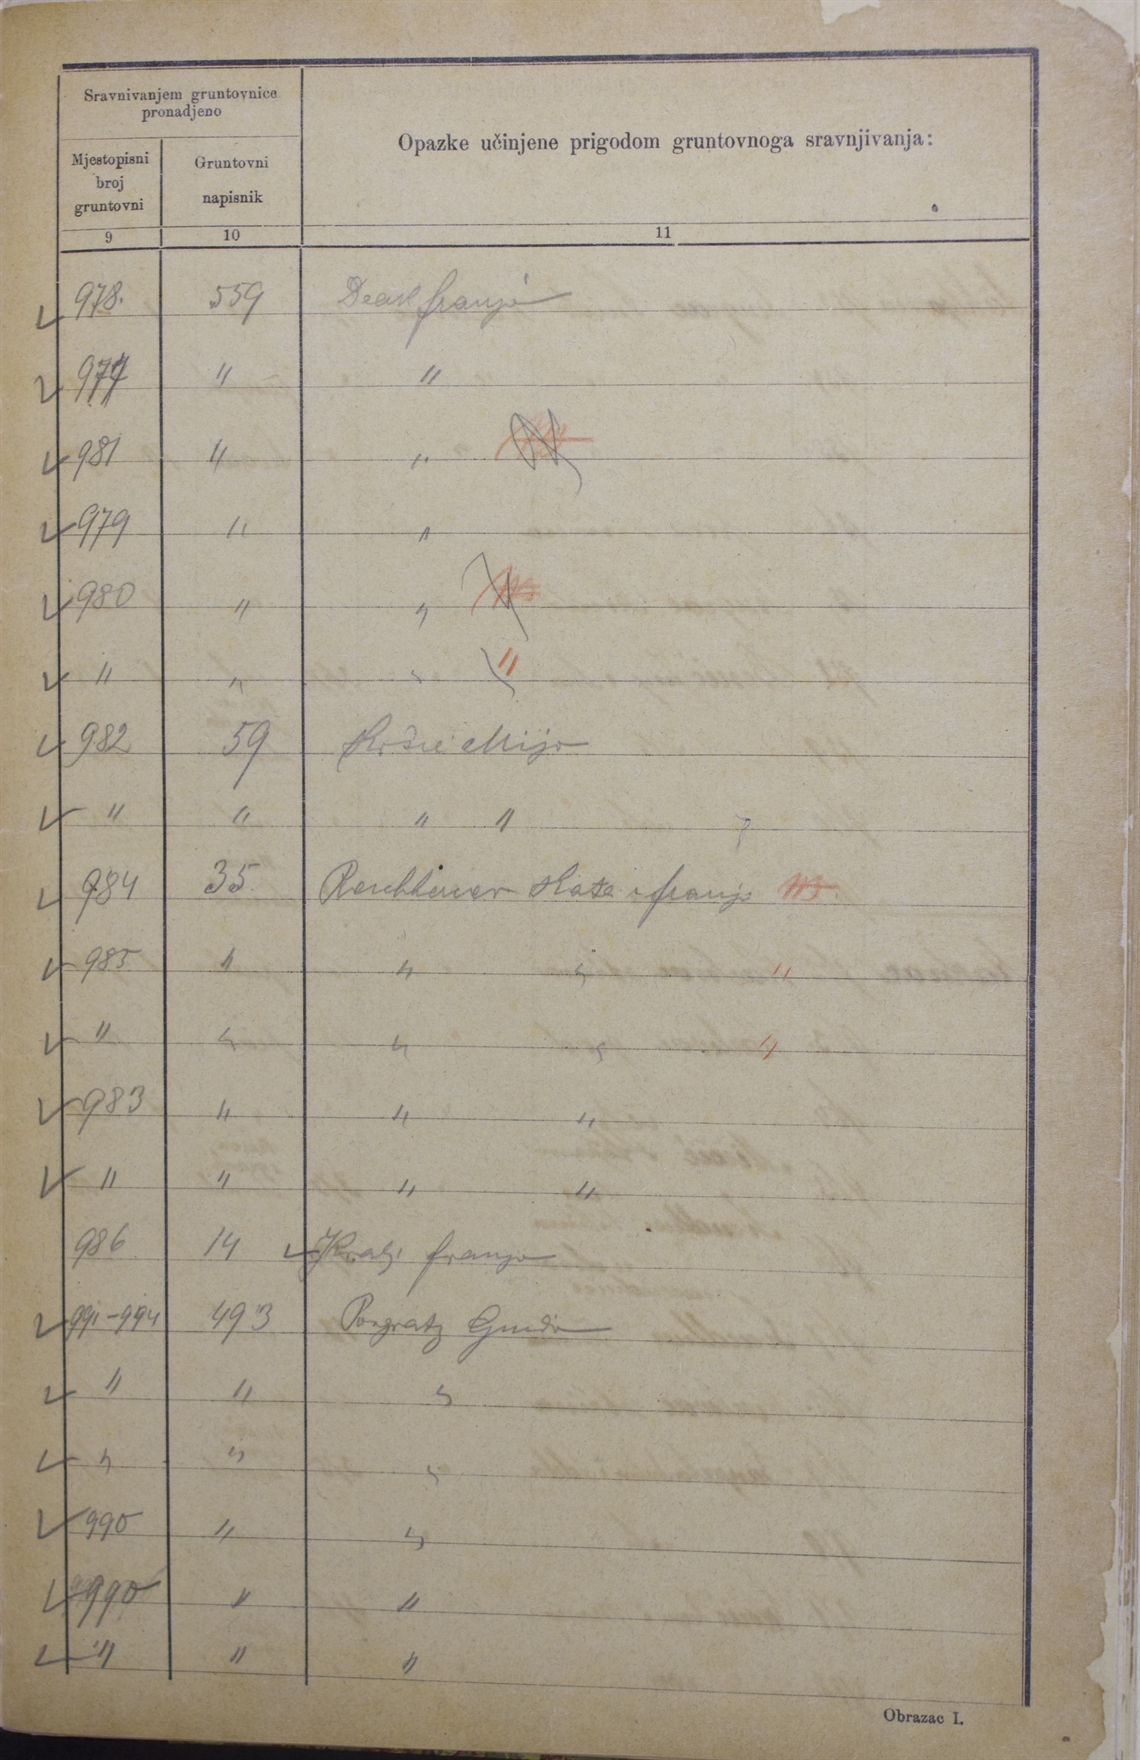 Sravnivanjem gruntovnice
pronadjeno
Opazke učinjene prigodom gruntovnoga sravnjivanja:
Mjestopisni
broj
gruntovni
Gruntovni
napisnik
9 10 11
978. 559 Deak franjo
977 " "
981 " "
979 " "
980 " "
" " " "
982 59 Mijo
" " " "
984 35. Kata i franjo
985 " " " "
" " " " "
983 " " "
" " " "
986 14 Kralj franjo
991-994 493 Pongratz Guido
" " "
" " "
990 " "
990 " "
" " "
Obrazac I.